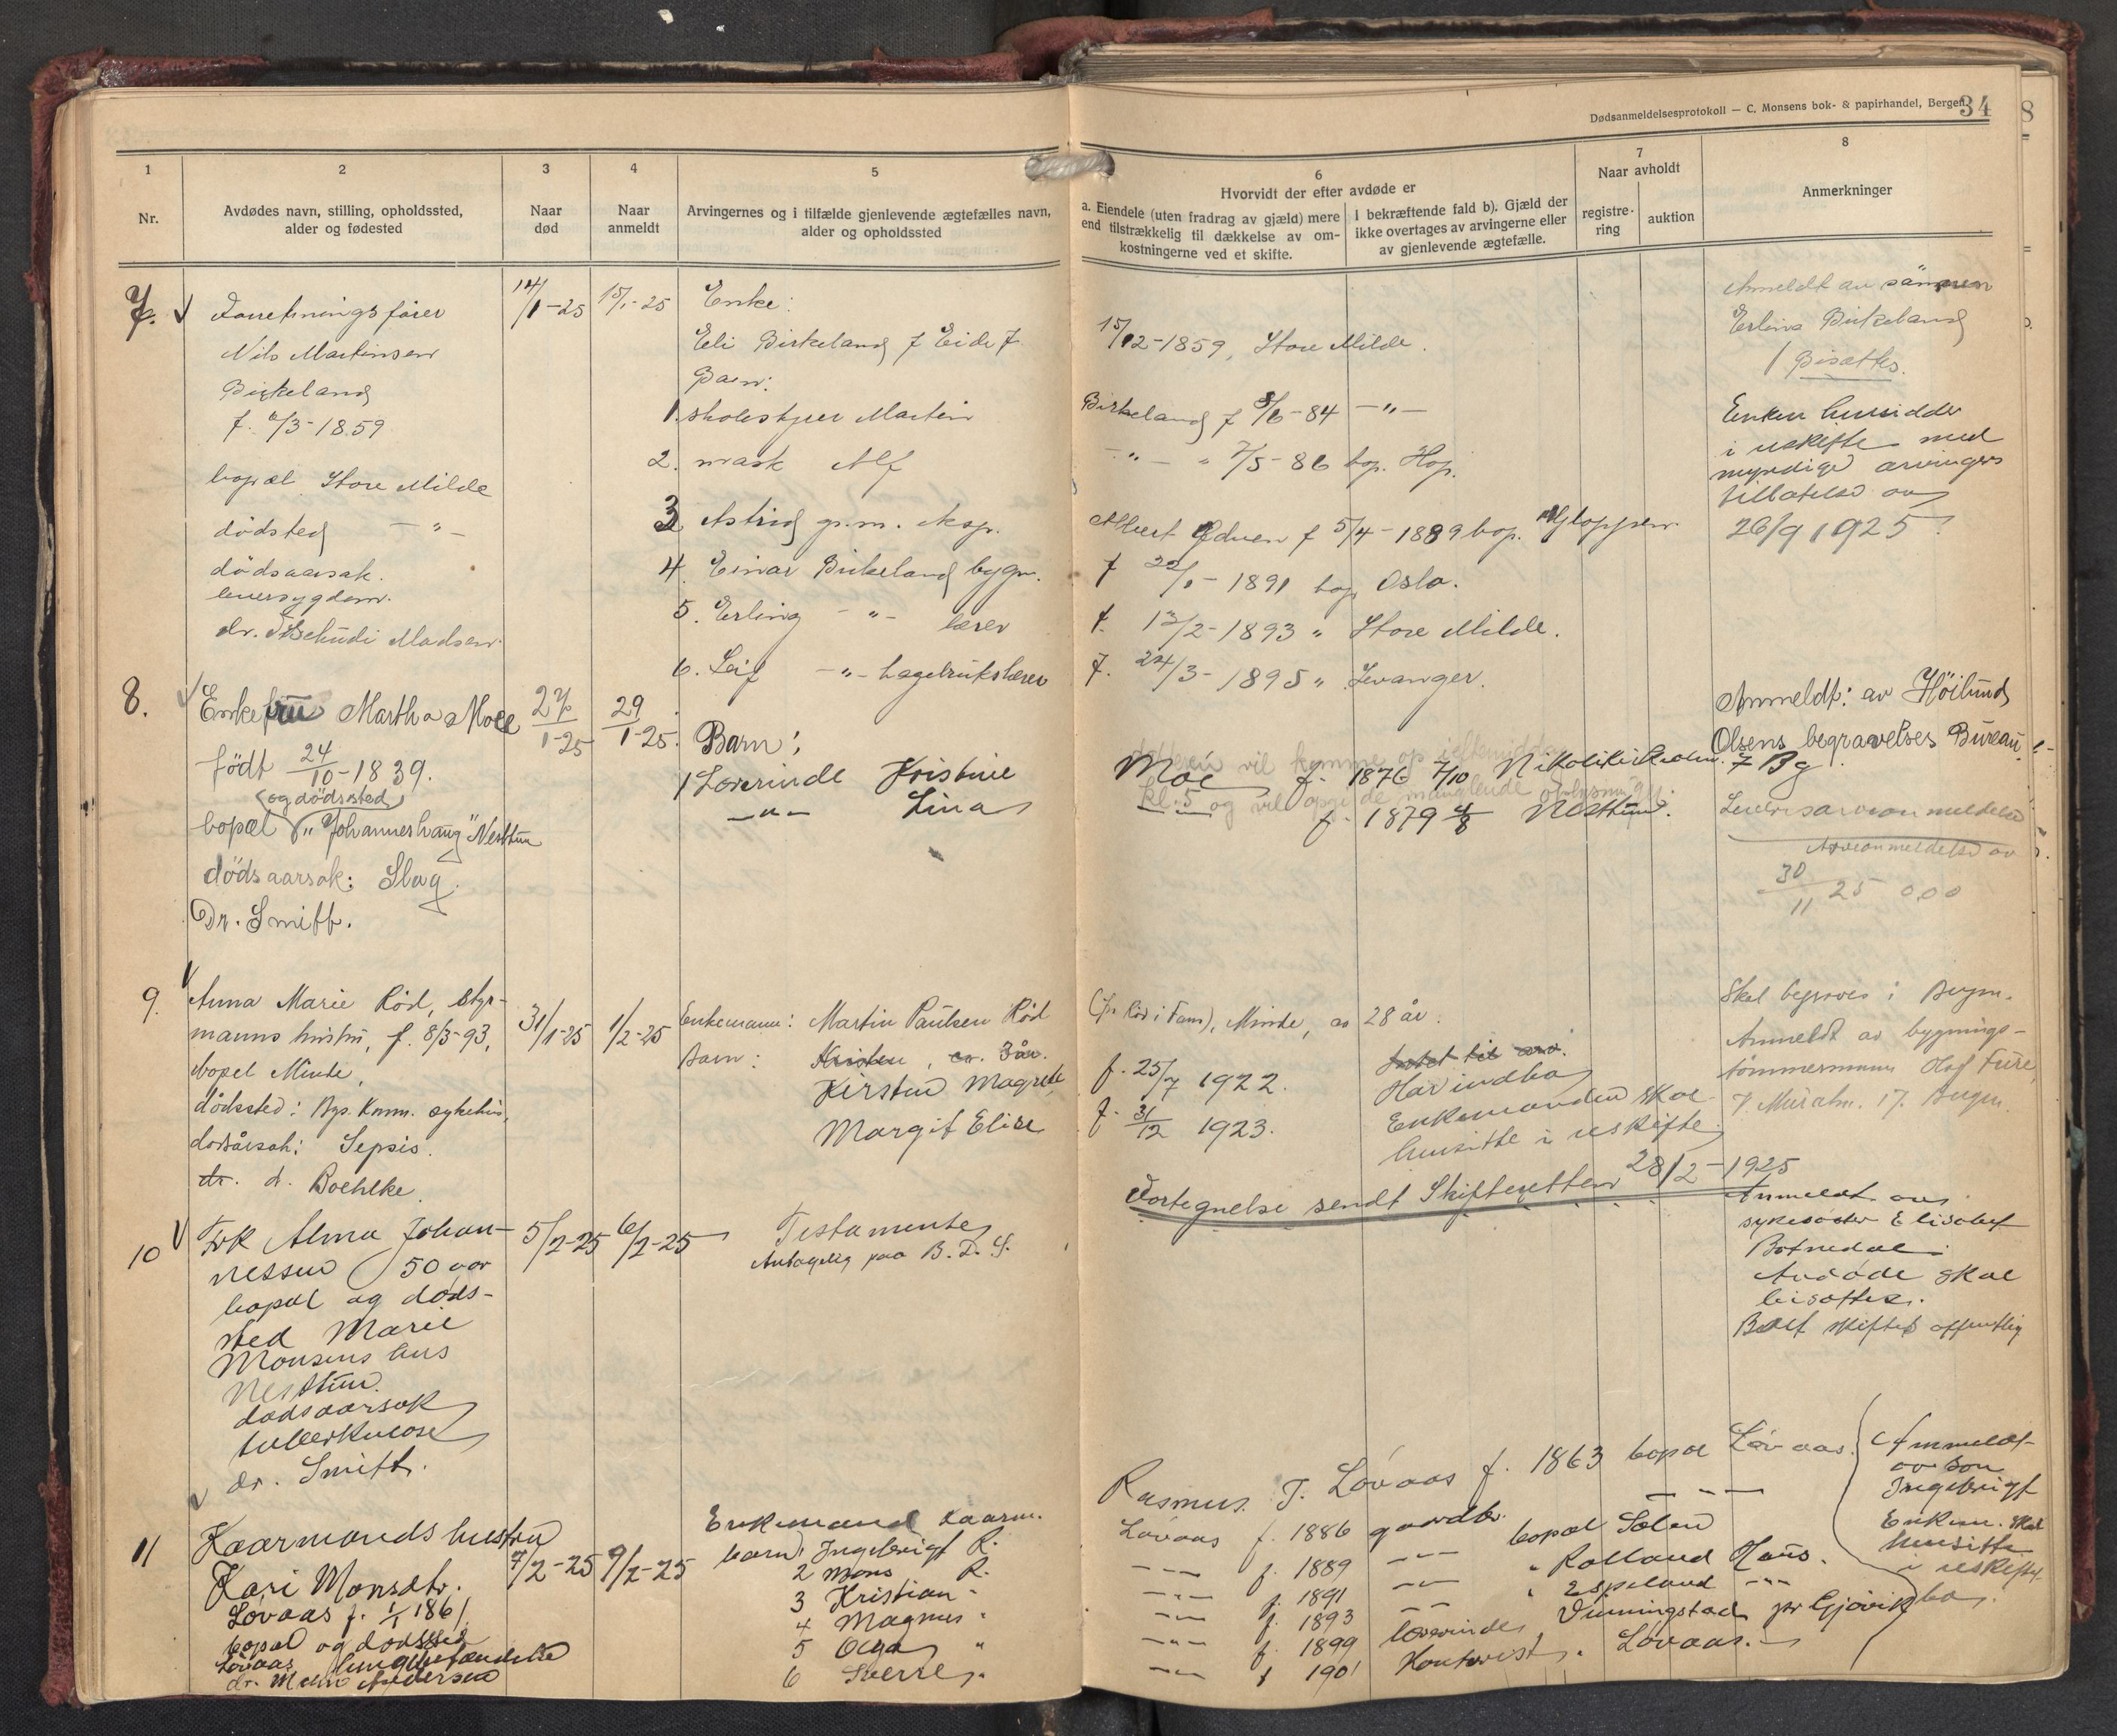 Dødsanmeldelsesprotokoll — C. Monsens bok- & papirhandel, Bergen.
34
1
Nr.
2
Avdødes navn, stilling, opholdssted,
alder og fødested
3
Naar
død
4
Naar
anmeldt
5
Arvingernes og i tilfælde gjenlevende ægtefælles navn,
alder og opholdssted
6
Hvorvidt der efter avdøde er
a. Eiendele (uten fradrag av gjæld) mere
end tilstrækkelig til dækkelse av om-
kostningerne ved et skifte.
I bekræftende fald b). Gjæld der
ikke overtages av arvingerne eller
av gjenlevende ægtefælle.
7
Naar avholdt
registre-
ring
auktion
8
Anmerkninger
7.
Forretningsfører
Nils Martinsen
Birkeland
f. /3-1859
bopæl Store Milde
dødsted — " —
dødsaarsak.
leversygdom.
dr. Tschudi Madsen.
14/1-25
15/1-25
Enke:
Eli Birkeland f. Eide f.
15/12-1859, Store Milde.
Barn:
1. skolestyrer Martin
Birkeland f 8/6-84 — " —
2. mask Alf
— " — " 7/5-86 bop. Hop.
3 Astrid g.m. eksp.
Albert f 5/4-1889 bop. Gloppen
4. Einar Birkeland bygm.
f 22/1-1891 bop Oslo.
5. Erling — " — lærer
f. 13/2-1893 " Store Milde.
6. Leif — " — hagebrukslærer
f. 24/3-1895 " Levanger.
Anmeldt av sønnen
Erling Birkeland
Bisættes.
Enken hensidder
i uskifte med
myndige arvingers
tillatelse av
26/9 1925
8.
Enkefru Martha Moe
født 24/10-1839.
(og dødssted)
bopæl "Johanneshaug" Nesttun
dødsaarsak: Slag.
Dr. Smitt.
27/1-25
29/1-25.
Barn:
1 Lærerinde Kristine
Moe f. 1876 7/10 Nikolikirkealm. 7 Bg
— " — Lina
— " — f. 1879 4/8 Nesttun.
vil komme op i eftermiddag
kl. 5 og vil opgi de manglende oplysninger.
Anmeldt: av Höilund
Olsens begravelses Bureau
Arveanmeldelse av
30/11 25 000
9.
Anna Marie Rød, styr-
manns hustru, f. 8/3-93,
bopel Minde,
dødssted: Bgs. Komm. sykehus,
dødsårsak: Sepsis.
dr. d. Boehlke.
31/1-25
1/2-25
Enkemann: Martin Paulsen Rød
Minde, ca 28 år.
Barn: Kirsten, ca. 3 år.
Kirsten Magrete
f. 25/7 1922.
Margit Elise
f. 31/12 1923.
Har indbo
Enkemanden skal
hensitte i uskifte.
Skal begraves i Bergen.
Anmeldt av bygnings-
tømmermann Fure,
17. Bergen.
Fortegnelse sendt Skifteretten 28/2-1925
10
Frk Alma Johan-
nessen 50 aar
bopæl og døds-
sted Marie
Monsens hus
Nesttun.
dødsaarsak
tuberkulose
dr. Smitt.
5/2-25
6/2-25
Testamente
Antagelig paa B. D. S.
Anmeldt av
sykesøster Elisabet
Botnedal.
Avdøde skal
bisættes.
Boet skiftes offentlig
11
Kaarmands hustru
Kari Monsdtr.
Løvaas f. 1/1 1861
bopæl og dødssted
Løvaas lungebetændelse
dr. Andersen
7/2-25
9/2-25
Enkemand kaarm.
Rasmus I. Løvaas f. 1863 bopæl Løvaas.
barn: Ingebrigt R.
Løvaas f. 1886 gaardbr. — " —
2 Mons R.
— " — f. 1889 — " — bopæl
3 Kristian "
— " — f. 1891 — " — " Rolland Haus.
4 Magnus "
— " — f. 1893 — " — " Espeland — " —
5 Olga "
— " — f. 1899 lærerinde Vinningstad pr Gjøvik
6 Sverre "
— " — f 1901 Kontorist. Løvaas.
Anmeldt
av søn
Ingebrigt
Enkem. skal
hensitte
i uskiftet
bo.